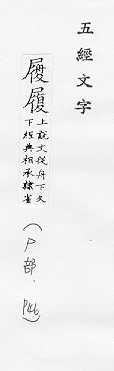 五經文字
履履
上說文從舟下文
下經典相承隸省
(尸部.
P46)